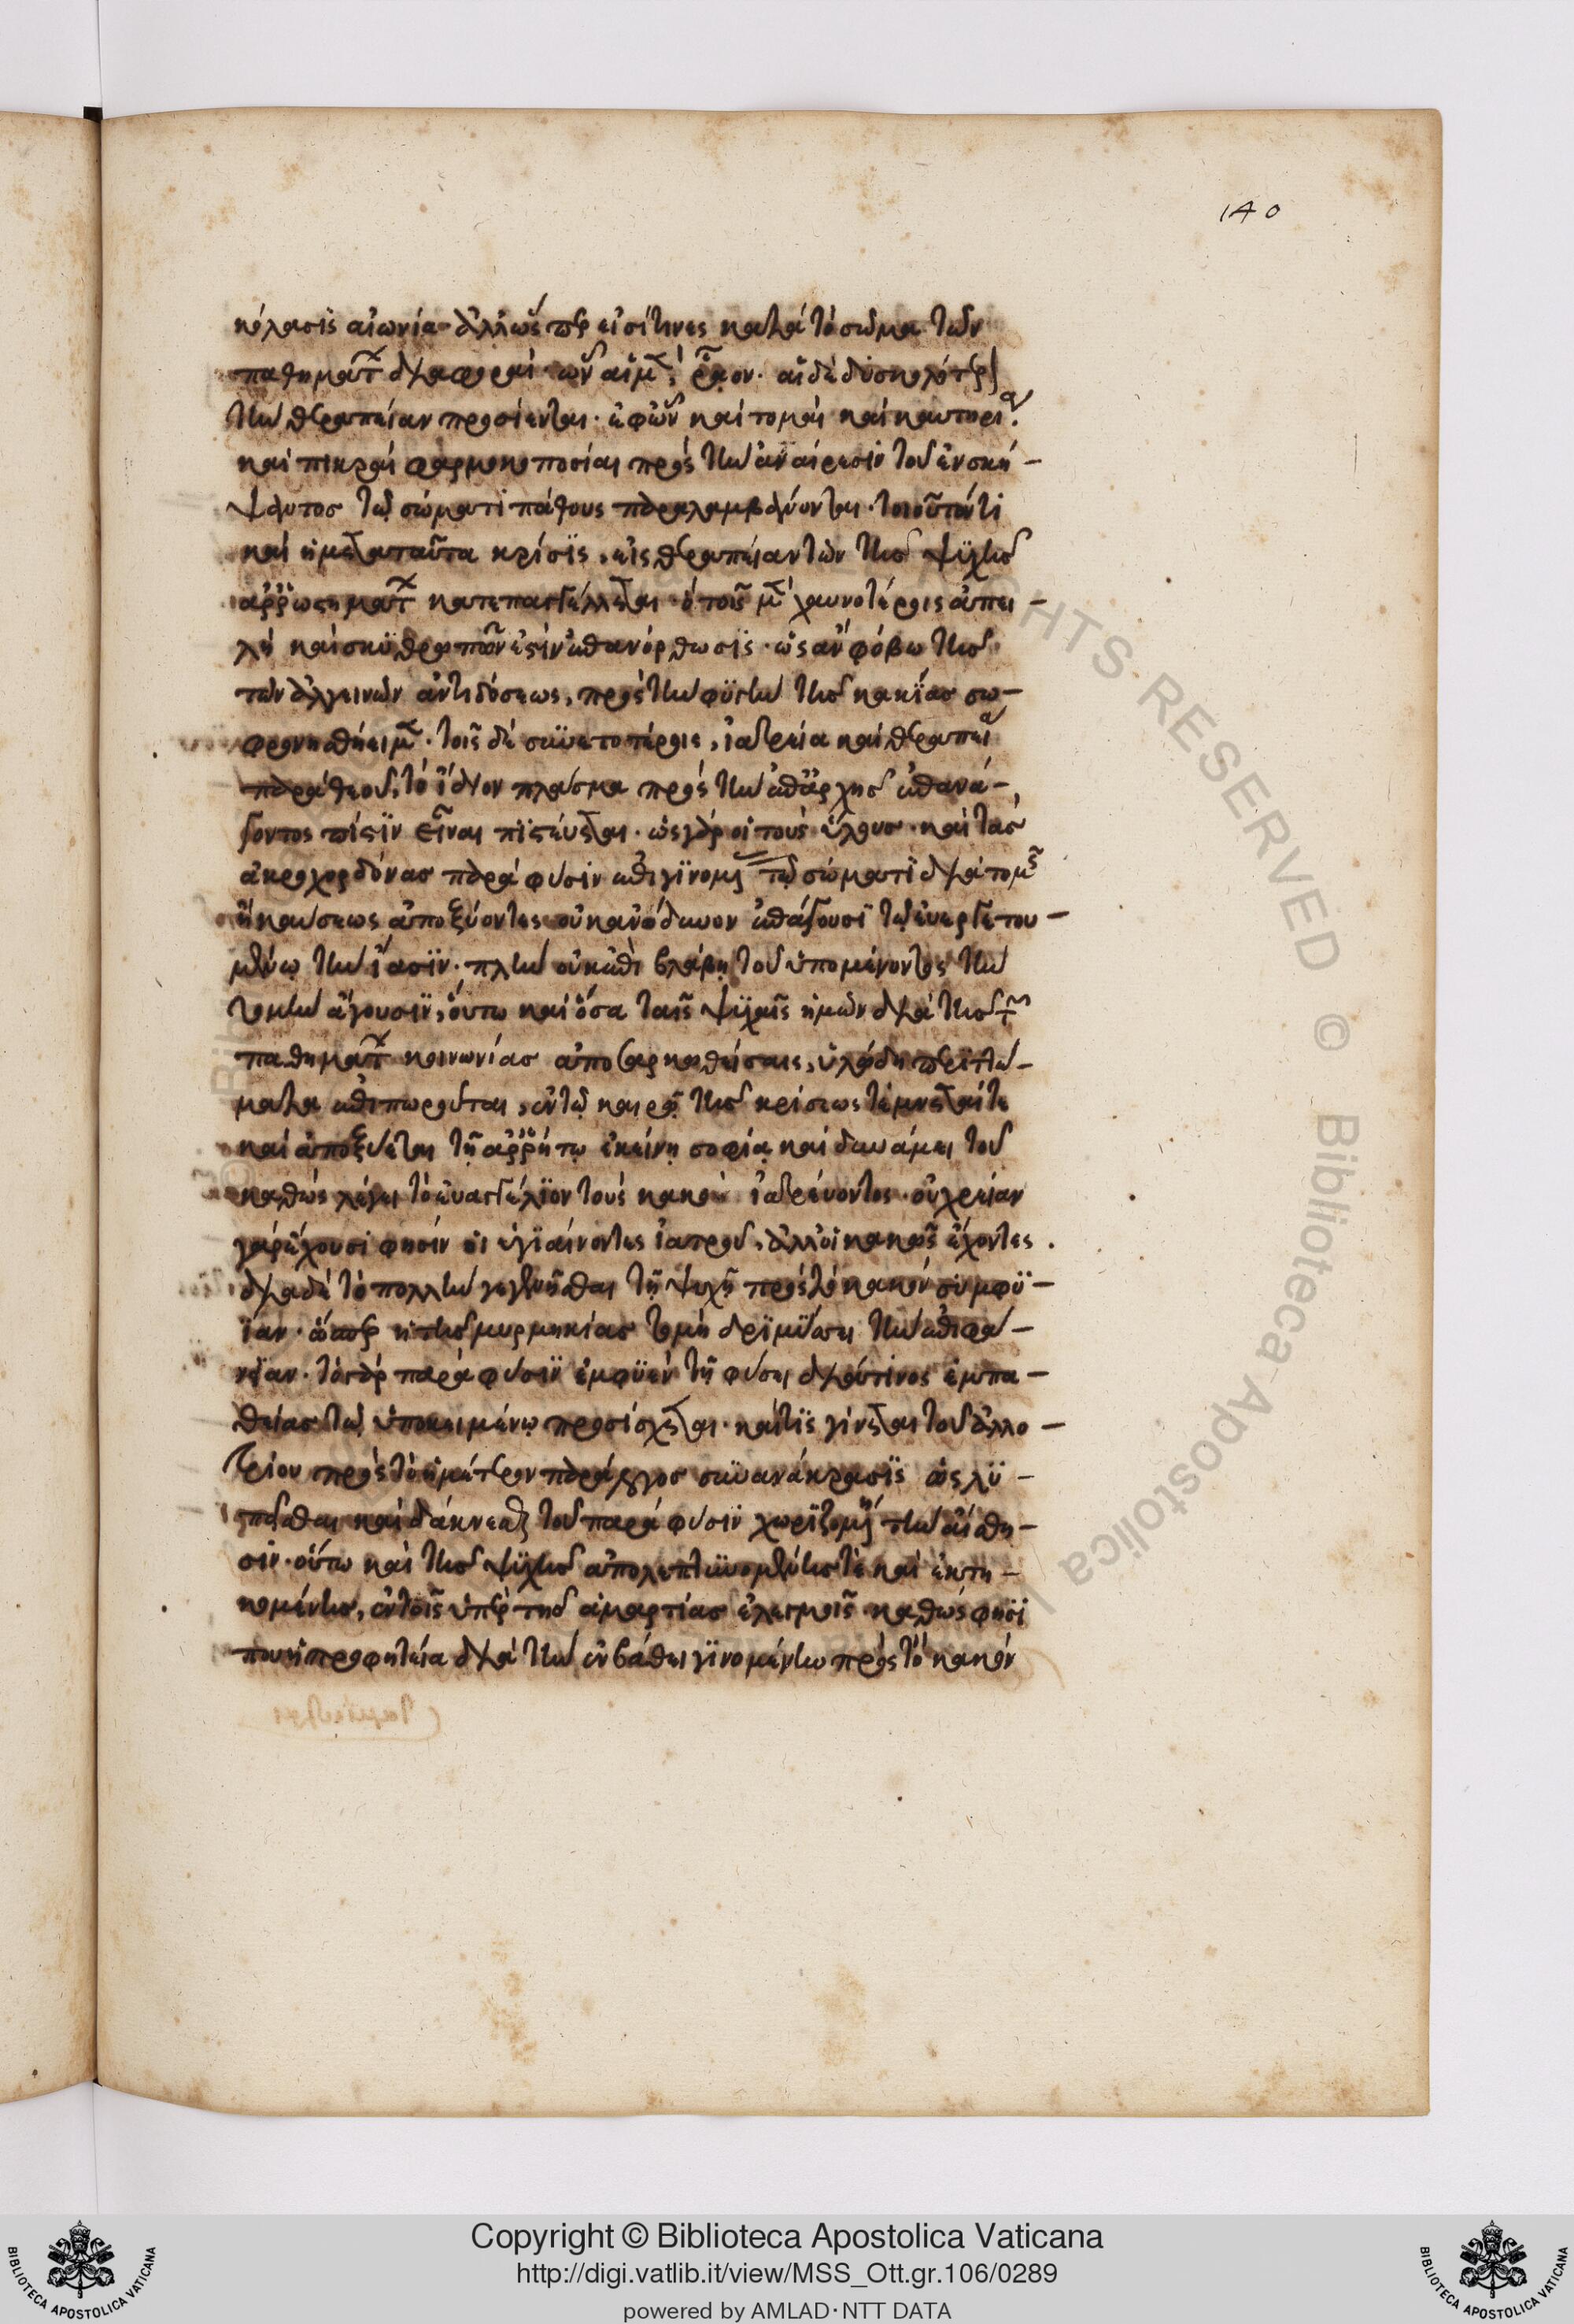 140
κόλασις αἰωνία· ἀλλ' ὥσπερ εἰσί τινες κατὰ τὸ σῶμα τῶν
παθημάτων διαφοραί· ὧν αἱ μὲν ῥᾷον· αἱ δὲ δυσκολώτερον
τὴν θεραπείαν προσίενται· ἐφ' ὧν καὶ τομαὶ καὶ καυτηρι
καὶ πικραὶ φαρμακοποσίαι πρὸς τὴν ἀναίρεσιν τοῦ ἐνσκή-
ψαντος τῷ σώματι πάθους παραλαμβάνονται· τοιοῦτόν τι
καὶ ἡ μετὰ ταῦτα κρίσις, εἰς θεραπείαν τῶν τῆς ψυχῆς
ἀρρωστημάτων κατεπαγγέλλεται· ὃ τοῖς μὲν χαυνοτέροις ἀπει-
λὴ καὶ σκυθρωπῶν ἐστὶν ἐπανόρθωσις· ὡς ἂν φόβῳ τῆς
τῶν ἀλγεινῶν ἀντιδόσεως, πρὸς τὴν φυγὴν τῆς κακίας σω-
φρονισθείημεν· τοῖς δὲ συνετωτέροις, ἰατρεία καὶ θεραπεία
παρὰ θεοῦ, τὸ ἴδιον πλάσμα πρὸς τὴν ἐξ ἀρχῆς ἐπανά-
γοντος πίστιν εἶναι πιστεύεται· ὡς γὰρ οἱ τοὺς ἥλους· καὶ τὰς
ἀκροχορδόνας παρὰ φύσιν ἐπιγινομένας τῷ σώματι διὰ τομῆς
ἢ καύσεως ἀποξύοντες οὐκ ἀνώδυνον ἐπάγουσι τῷ εὐεργετου-
μένῳ τὴν ἴασιν· πλὴν οὐκ ἐπὶ βλάβῃ τοῦ ὑπομένοντος τὴν
τομὴν ἄγουσιν, οὕτω καὶ ὅσα ταῖς ψυχαῖς ἡμῶν διὰ τῆς τῶν
παθημάτων κοινωνίας ἀποσαρκωθείσαις, ὑλώδη περιττώ-
ματα ἐπιπωροῦται, ἐν τῷ καιρῷ τῆς κρίσεως τέμνεταί τε
καὶ ἀποξύεται τῇ ἀρρήτῳ ἐκείνῃ σοφίᾳ καὶ δυνάμει τοῦ
καθὼς λέγει τὸ εὐαγγέλιον τοὺς κακοὺς ἰατρεύοντος· οὐ χρείαν
γὰρ ἔχουσί φησιν οἱ ὑγιαίνοντες ἰατροῦ, ἀλλ' οἱ κακῶς ἔχοντες.
διὰ δὲ τὸ πολλὴν γεγενῆσθαι τῇ ψυχῇ πρὸς τὸ κακὸν συμφυ-
ΐαν· ὥσπερ ἡ τῆς μυρμηκίας τομὴ δριμύσσει τὴν ἐπιφά-
νειαν· τὸ γὰρ παρὰ φύσιν ἐμφυὲν τῇ φύσει διά τινος ἐμπα-
θείας τῷ ὑποκειμένῳ προσίσχεται· καί τις γίνεται τοῦ ἀλλο-
τρίου πρὸς τὸ ἡμέτερον παράλογος συνανάκρασις ὡς λυ-
πεῖσθαι καὶ δάκνεσθαι τοῦ παρὰ φύσιν χωριζομένην τὴν αἴσθη-
σιν· οὕτω καὶ τῆς ψυχῆς ἀπολεπτυνομένης τὲ καὶ ἐκτη-
κομένης, ἐν τοῖς ὑπὲρ τῆς ἁμαρτίας ἐλεγμοῖς καθώς φησί
που ἡ προφητεία διὰ τὴν ἐν βάθει γινομένην πρὸς τὸ κακὸν
Copyright © Biblioteca Apostolica Vaticana
http://digi.vatlib.it/view/MSS_Ott.gr.106/0289
powered by AMLAD·NTT DATA